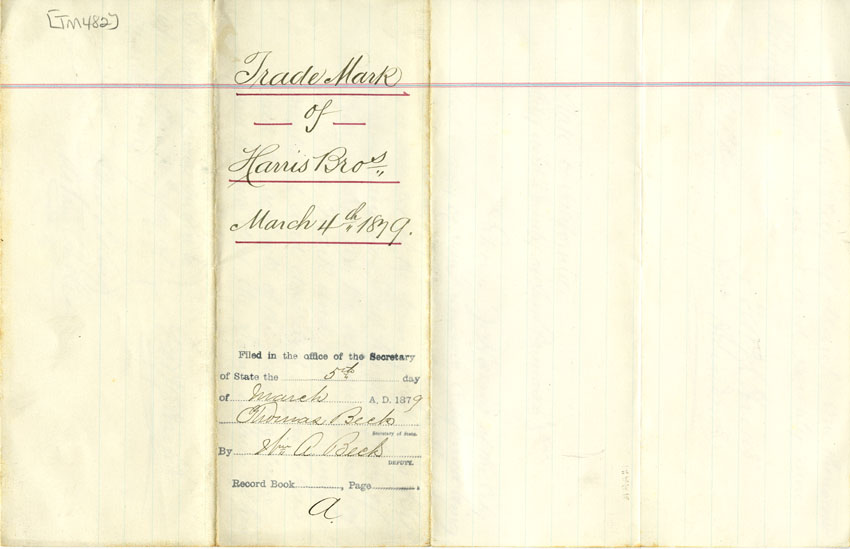 [TM482]
Trade Mark
of
Harris Bros.,
March 4th 1879.
Filed in the office of the Secretary
of State the 5th day
of March A. D. 1879
Thomas Beck
Secretary of State.
By Wm A Beck
DEPUTY.
Record Book , Page
A.